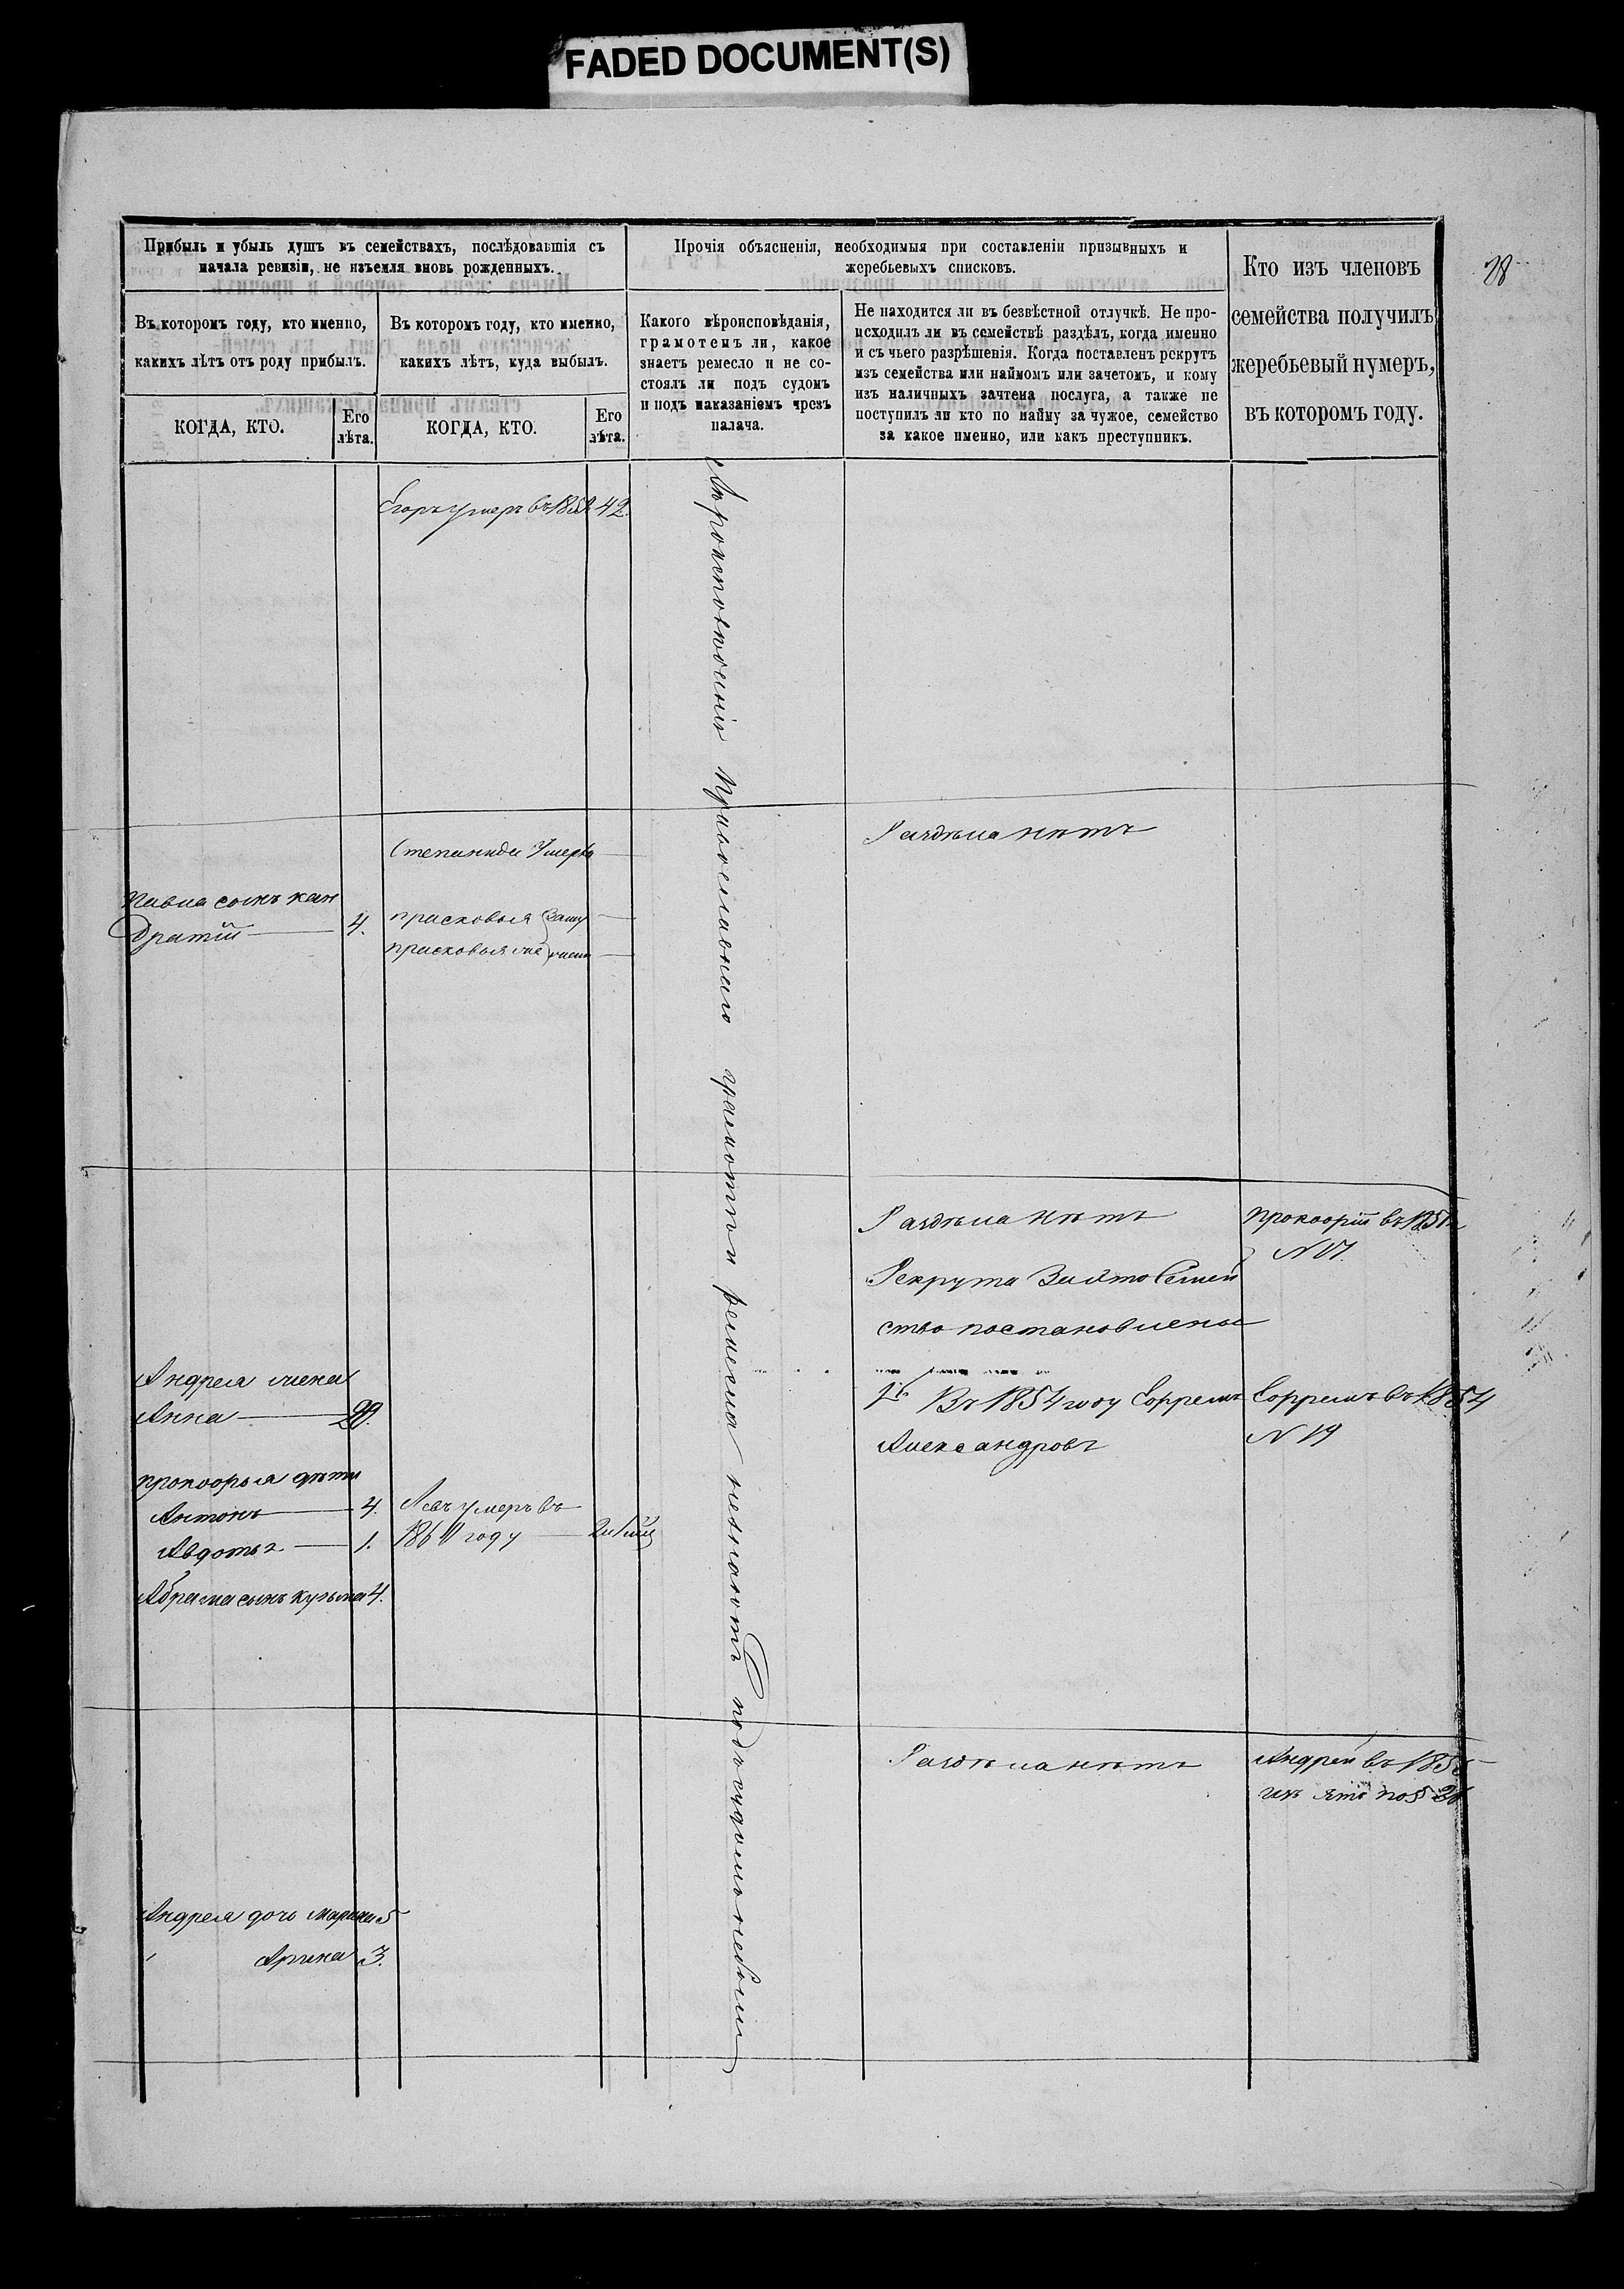 FADED DOCUMENT(S)
Прибыль и убыль душъ въ семействахъ, послѣдовавшія съ
начала ревизіи, не изъемля вновь рожденныхъ.
Прочія объясненія, необходимыя при составленіи призывныхъ и
жеребьевыхъ списковъ.
Кто изъ членовъ
семейства получилъ
жеребьевый нумеръ,
въ которомъ году.
28
Въ которомъ году, кто именно,
какихъ лѣтъ отъ роду прибылъ.
Въ которомъ году, кто именно,
какихъ лѣтъ, куда выбылъ.
Какого вѣроисповѣданія,
грамотенъ ли, какое
знаетъ ремесло и не со-
стоялъ ли подъ судомъ
и подъ наказаніемъ чрезъ
палача.
Не находится ли въ безвѣстной отлучкѣ. Не про-
исходилъ ли въ семействѣ раздѣлъ, когда именно
и съ чьего разрѣшенія. Когда поставленъ рекрутъ
изъ семейства или наймомъ или зачетомъ, и кому
изъ наличныхъ зачтена послуга, а также не
поступилъ ли кто по найму за чужое, семейство
за какое именно, или какъ преступникъ.
КОГДА, КТО.
Его
лѣта.
КОГДА, КТО.
Его
лѣта.
Егоръ умеръ въ 42.
Вѣроисповѣданія Православнаго грамоты и ремесла незнаютъ подъ судомъ небыли
Степанида Умерла
Раздѣла нѣтъ
Павла сынъ кан
дратій 4.
прасковья Заму
прасковья жемъ
Раздѣла нѣтъ
Прокофій въ
N 17.
Рекрута Зайто Семей
ство постановлены
Андрея жена
Анна
Въ 1854 году Ефремъ
Александровъ
Ефремъ въ 1854
N 19
прокофья дѣти
Антонъ 4.
Авдотья 1.
Левъ умеръ въ
году
Абрама сынъ кузьма 4.
Раздѣла нѣтъ
Андрей въ
Андрея дочь Марина 5
Арина 3.